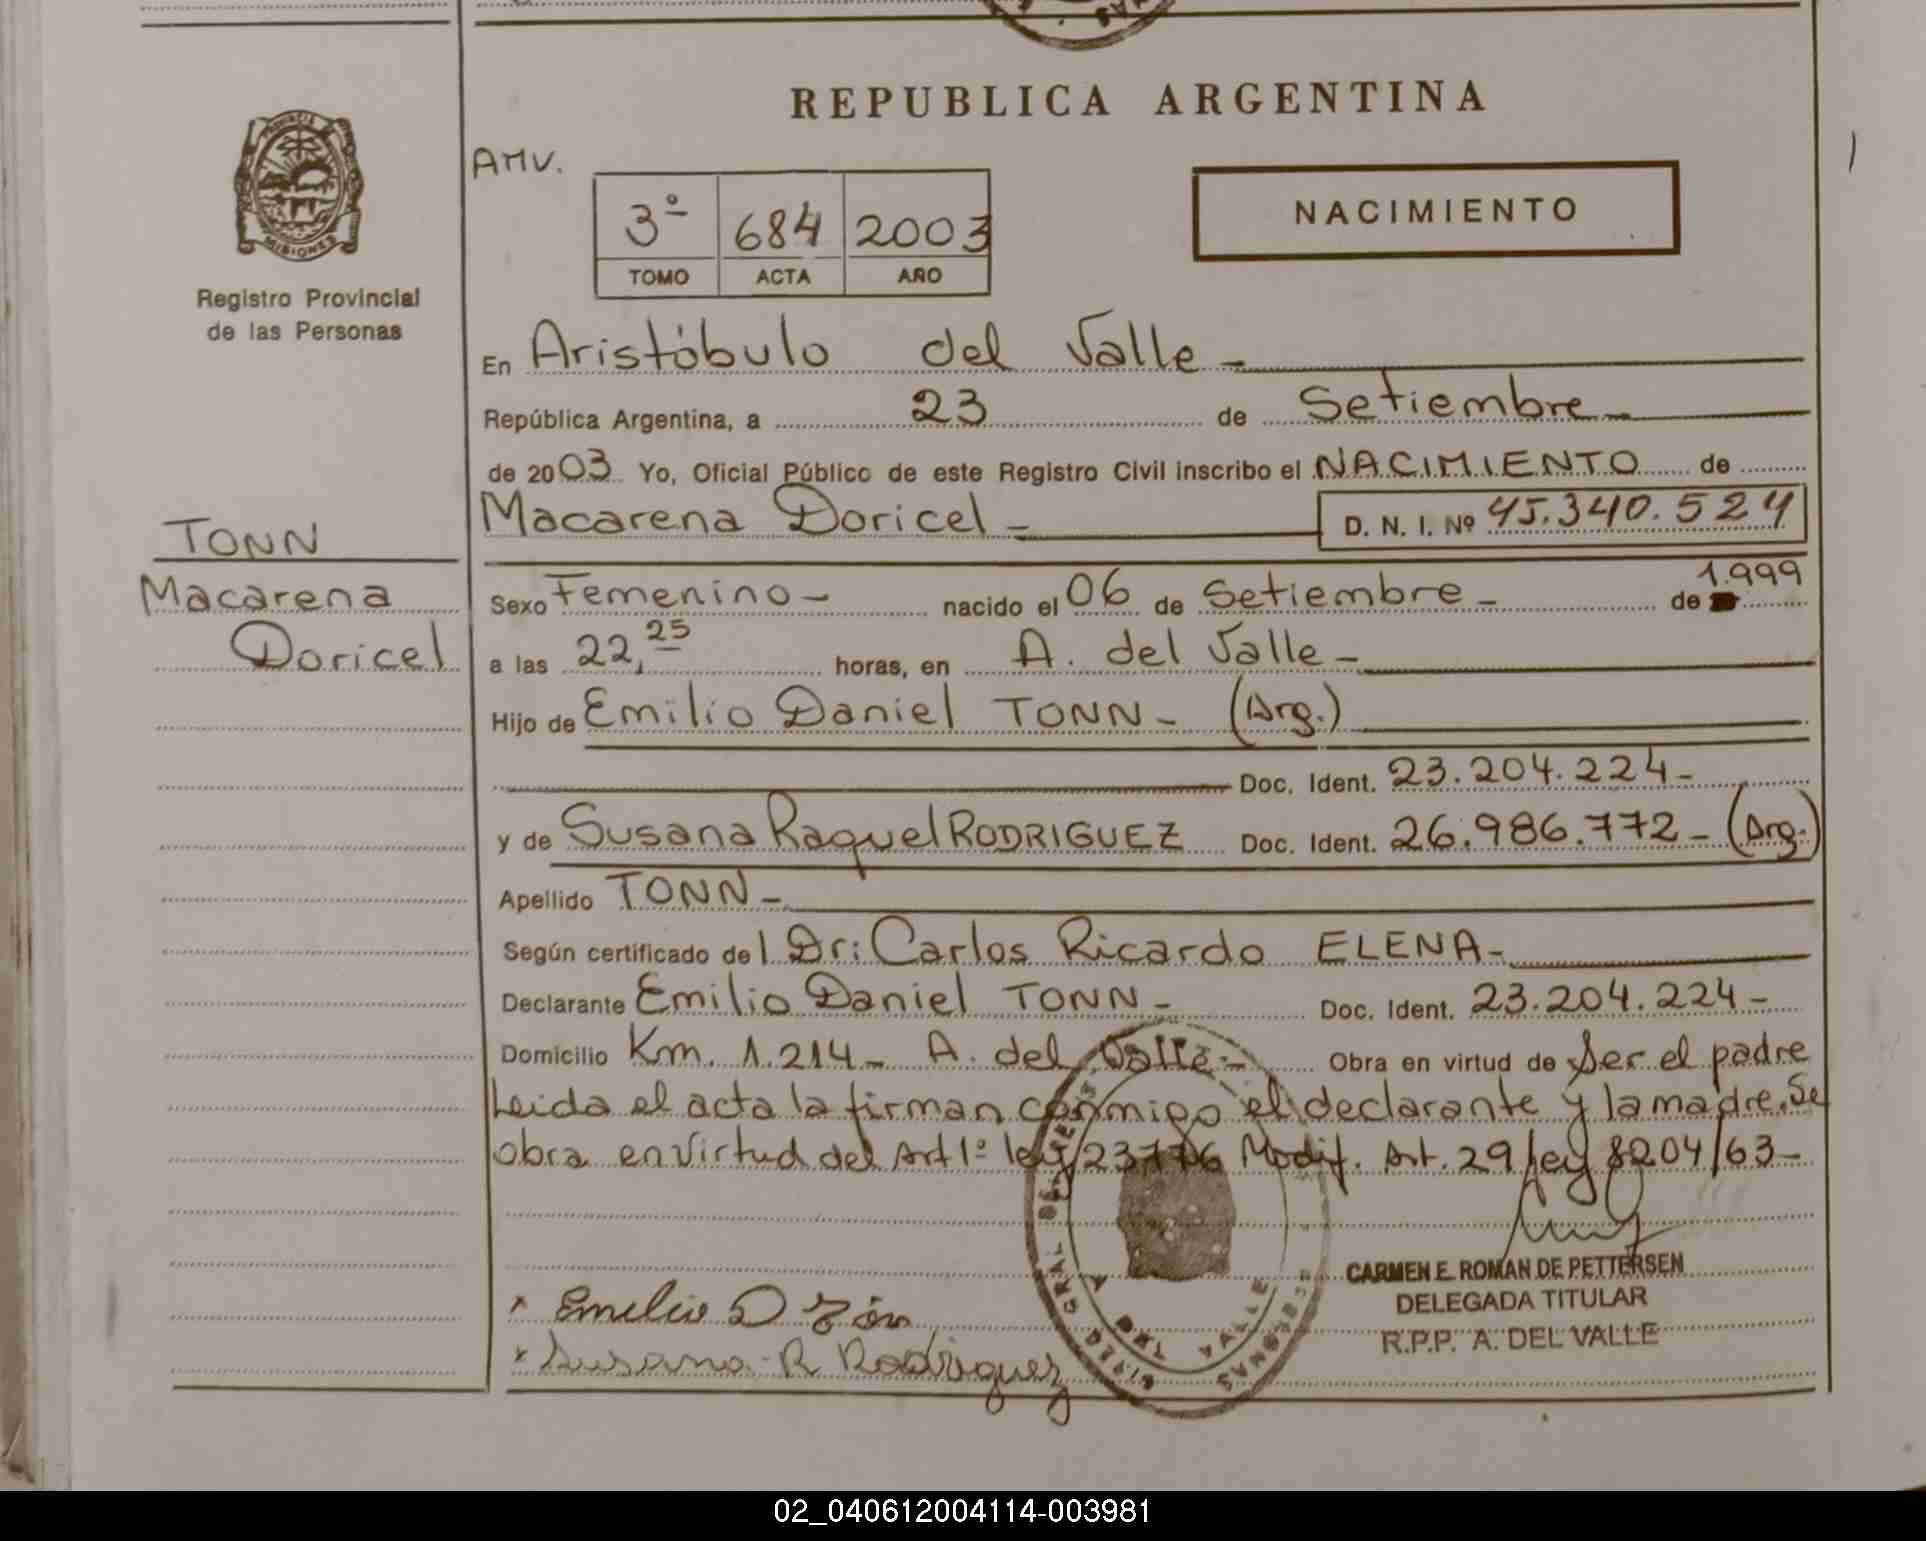 REPUBLICA ARGENTINA
PROVINCIA
MISIONES
Registro Provincial
de las Personas
AMV.
3º 684 2003
TOMO ACTA AÑO
NACIMIENTO
En Aristóbulo del Valle -
República Argentina, a 23 de Setiembre
de 2003 Yo, Oficial Público de este Registro Civil inscribo el NACIMIENTO de
Macarena Doricel - D. N. I. Nº 45.340.524
TONN
Macarena
Doricel
Sexo Femenino - nacido el 06 de Setiembre - de 1.999
a las 22,25 horas, en A. del Valle -
Hijo de Emilio Daniel TONN - (Arg.)
Doc. Ident. 23.204.224 -
y de Susana Raquel RODRIGUEZ Doc. Ident. 26.986.772 - (Arg.)
Apellido TONN -
Según certificado del Dr: Carlos Ricardo ELENA -
Declarante Emilio Daniel TONN - Doc. Ident. 23.204.224 -
Domicilio Km. 1.214 - A. del Valle - Obra en virtud de Ser el padre
Leida el acta la firman conmigo el declarante y la madre. Se
obra en virtud del Art 1º ley 23776 Modif. Art. 29 ley 8204/63 -
CARMEN E. ROMAN DE PETTERSEN
DELEGADA TITULAR
R.P.P. A. DEL VALLE
x Emilio D
x Susana R Rodriguez
A DEL VALLE
02_040612004114-003981